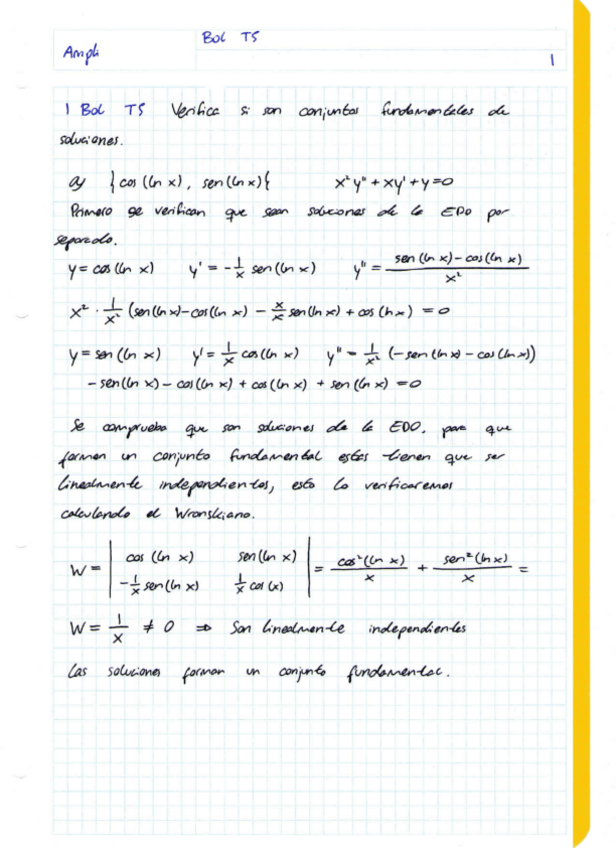 Bol T5
Ampli
1
1 Bol T5 Verifica si son conjuntos fundamentales de
soluciones.
a) {cos (ln x), sen (ln x)} x² y'' + xy' + y = 0
Primero se verifican que sean soluciones de la EDO por
separado.
y = cos (ln x) y' = -1/x sen (ln x) y'' = sen (ln x) - cos (ln x) / x²
x² · 1/x² (sen (ln x) - cos (ln x) - x/x sen (ln x) + cos (ln x) = 0
y = sen (ln x) y' = 1/x cos (ln x) y'' = 1/x² (-sen (ln x) - cos (ln x))
- sen (ln x) - cos (ln x) + cos (ln x) + sen (ln x) = 0
Se comprueba que son soluciones de la EDO, para que
formen un conjunto fundamental estas tienen que ser
linealmente independientes, esto lo verificaremos
calculando el Wronskiano.
W = | cos (ln x) sen (ln x) | = cos² (ln x) / x + sen² (ln x) / x =
| -1/x sen (ln x) 1/x cos (x) |
W = 1/x ≠ 0 ⇒ Son linealmente independientes
Las soluciones forman un conjunto fundamental.